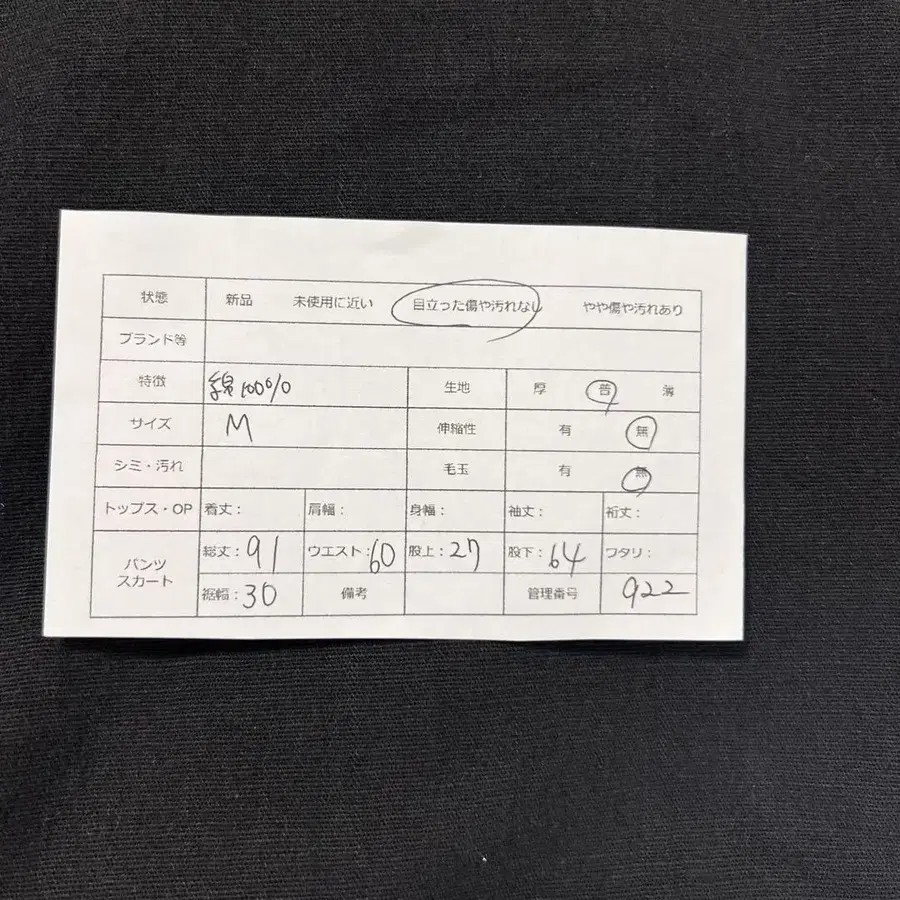 状態 新品 未使用に近い 目立った傷や汚れなし やや傷や汚れあり
ブランド等
特徴 綿100% 生地 厚 普 薄
サイズ M 伸縮性 有 無
シミ・汚れ 毛玉 有 無
トップス・OP 着丈: 肩幅: 身幅: 袖丈: 裄丈:
パンツ スカート 総丈:91 ウエスト:60 股上:27 股下:64 ワタリ:
裾幅:30 備考 管理番号 922